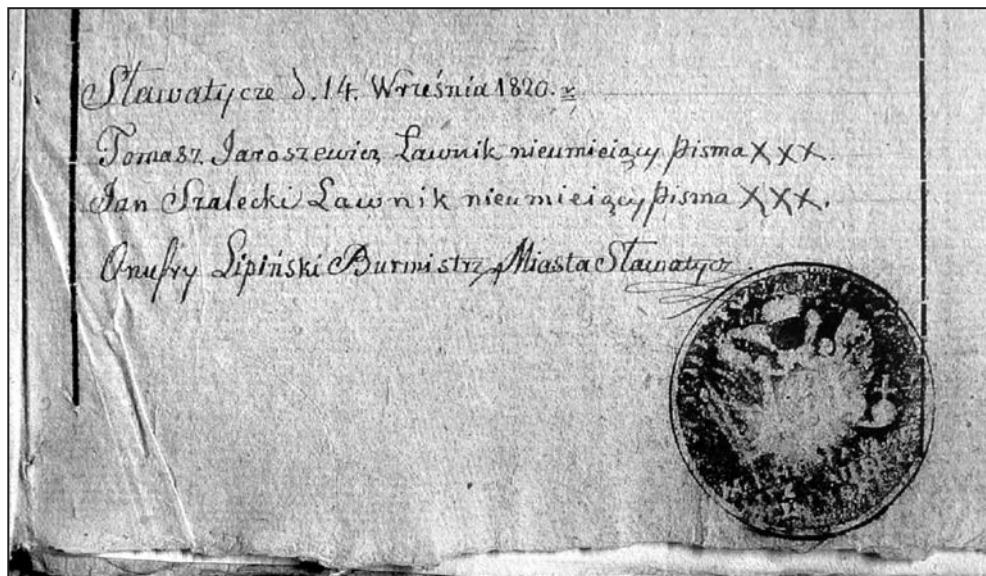 Sławatycze d. 14. Września 1820. r
Tomasz Jaroszewicz Ławnik nieumieiący pisma XXX.
Jan Szalecki Ławnik nieumieiący pisma XXX.
Onufry Lipiński Burmistrz Miasta Sławatycz